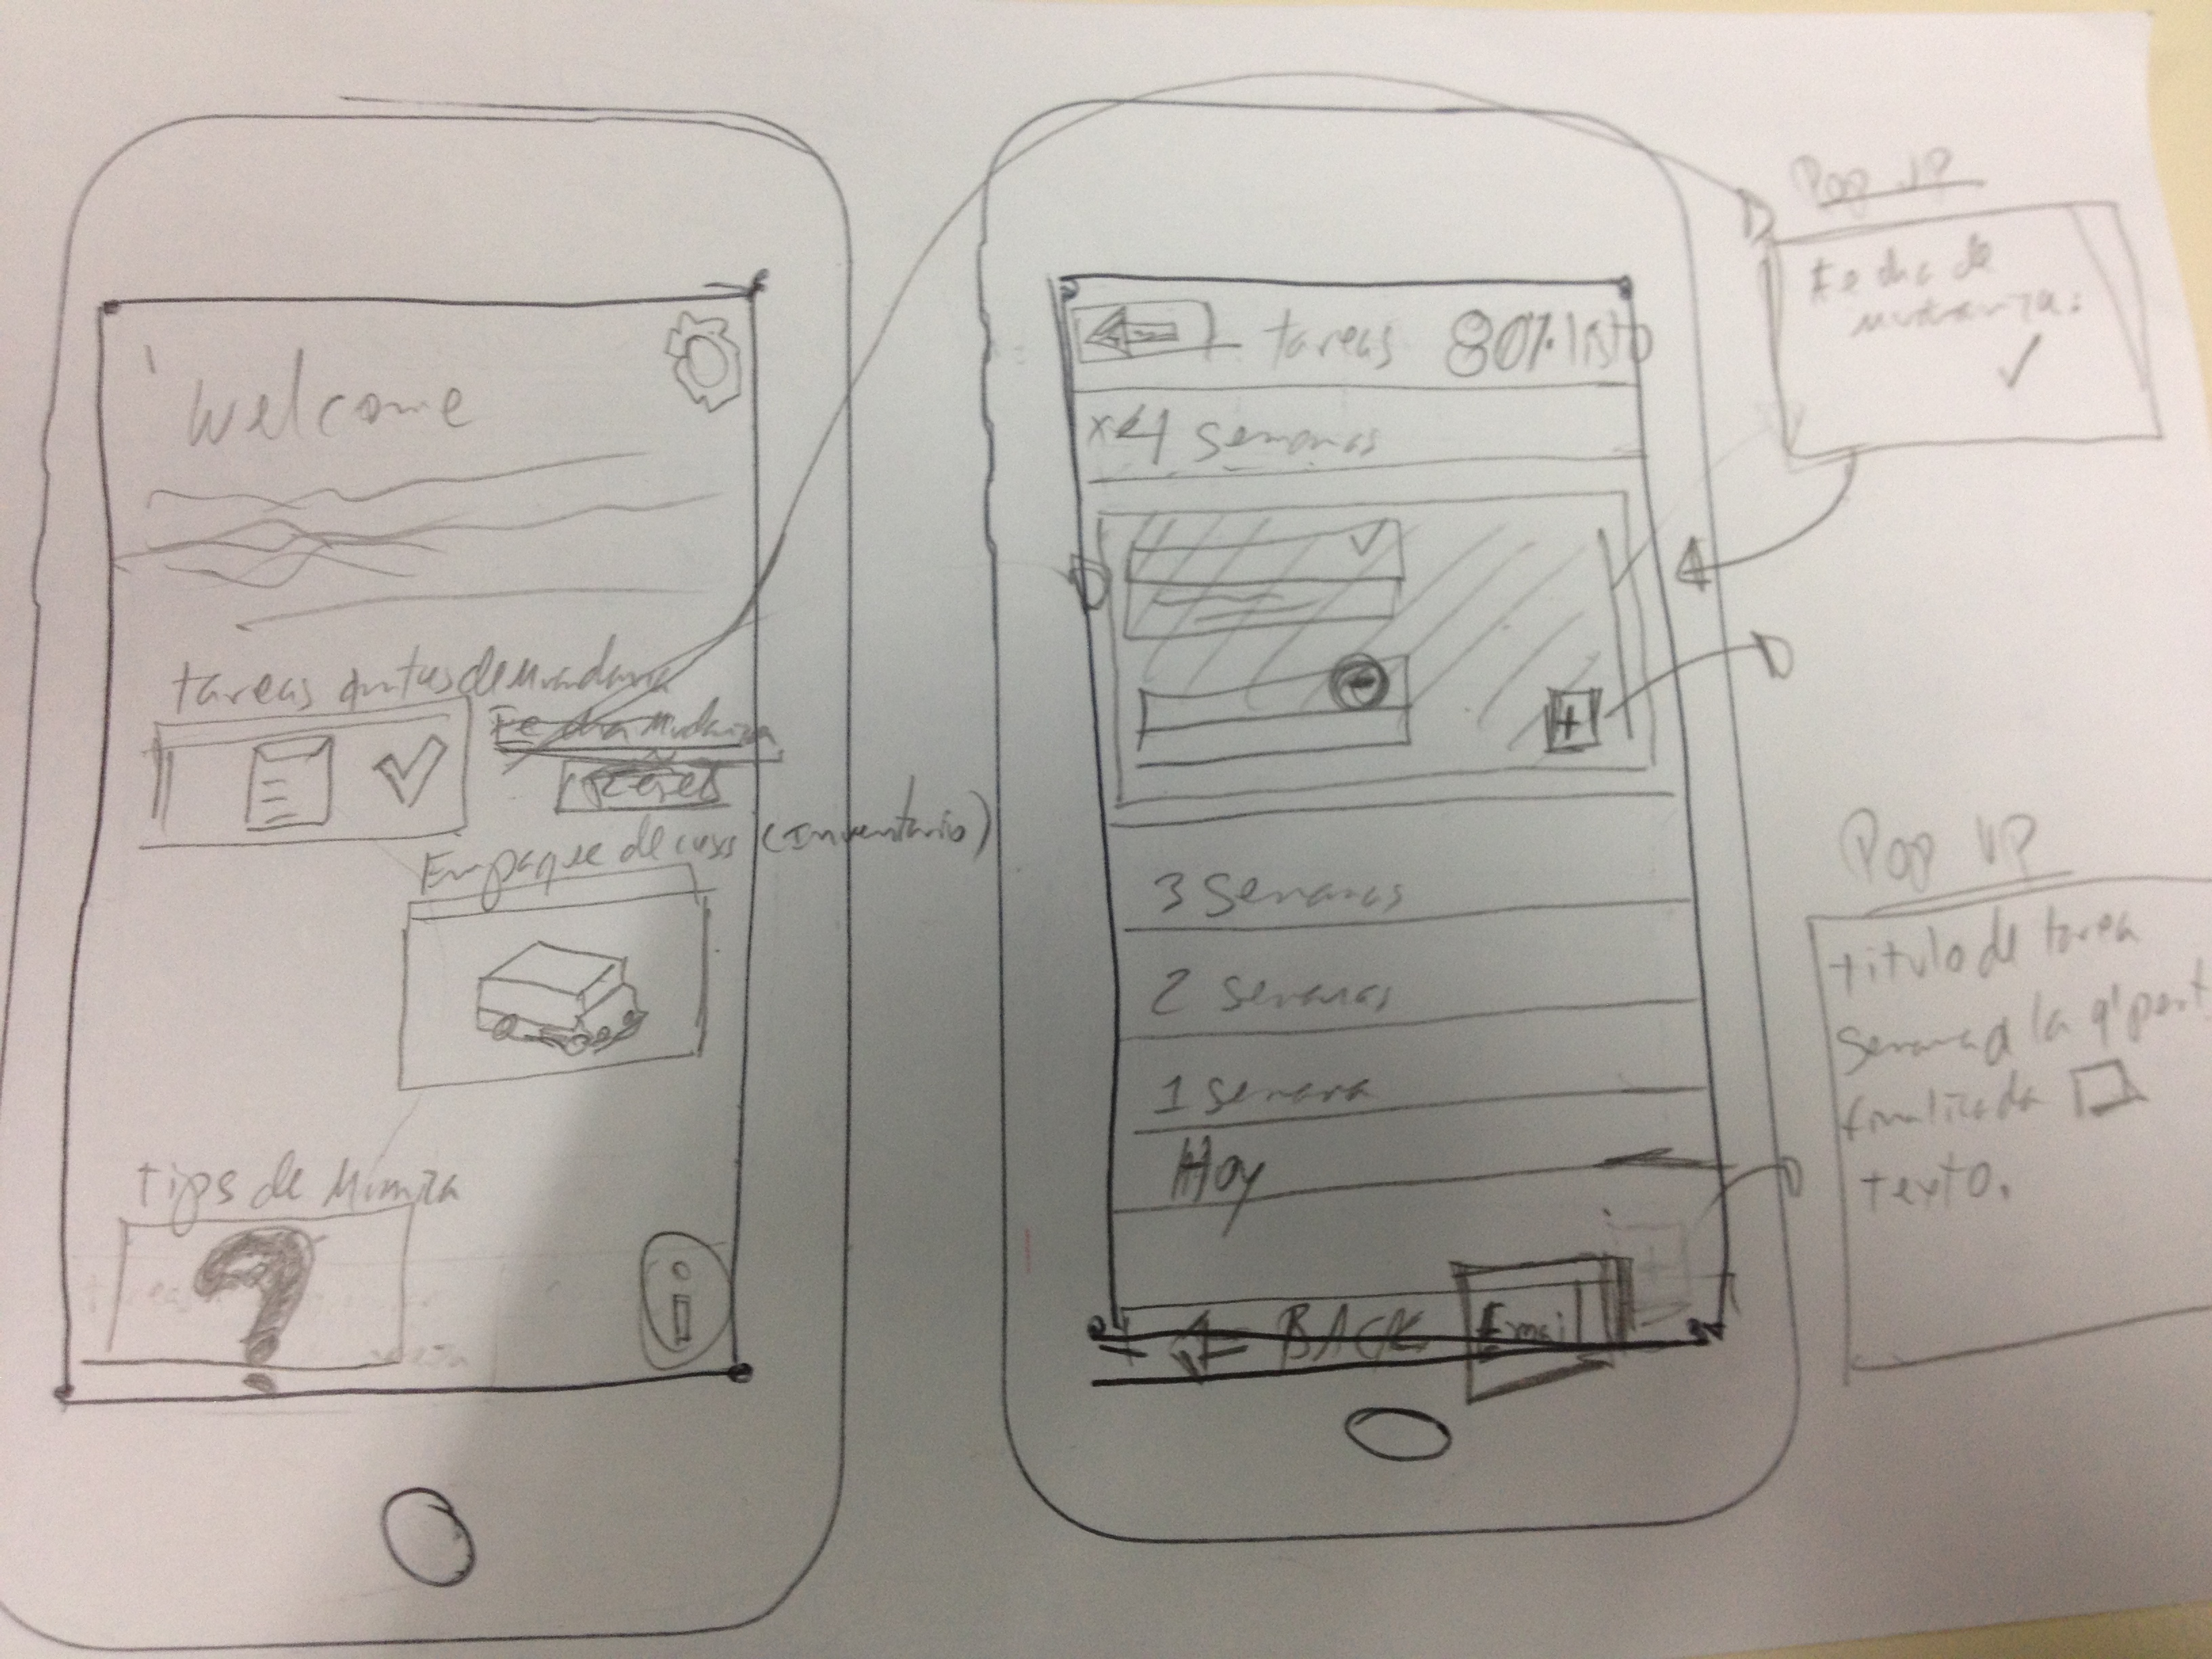 Welcome
tareas antes de Mudanza
Fecha Mudanza
Empaque de cosas (Inventario)
Tips de Mudanza
i
tareas 80% listo
x4 Semanas
3 Semanas
2 Semanas
1 Semana
Hoy
BACK Email
Pop UP
Fecha de
mudanza:
Pop UP
titulo de tarea
Semana a la q' pert
finalizada
texto.